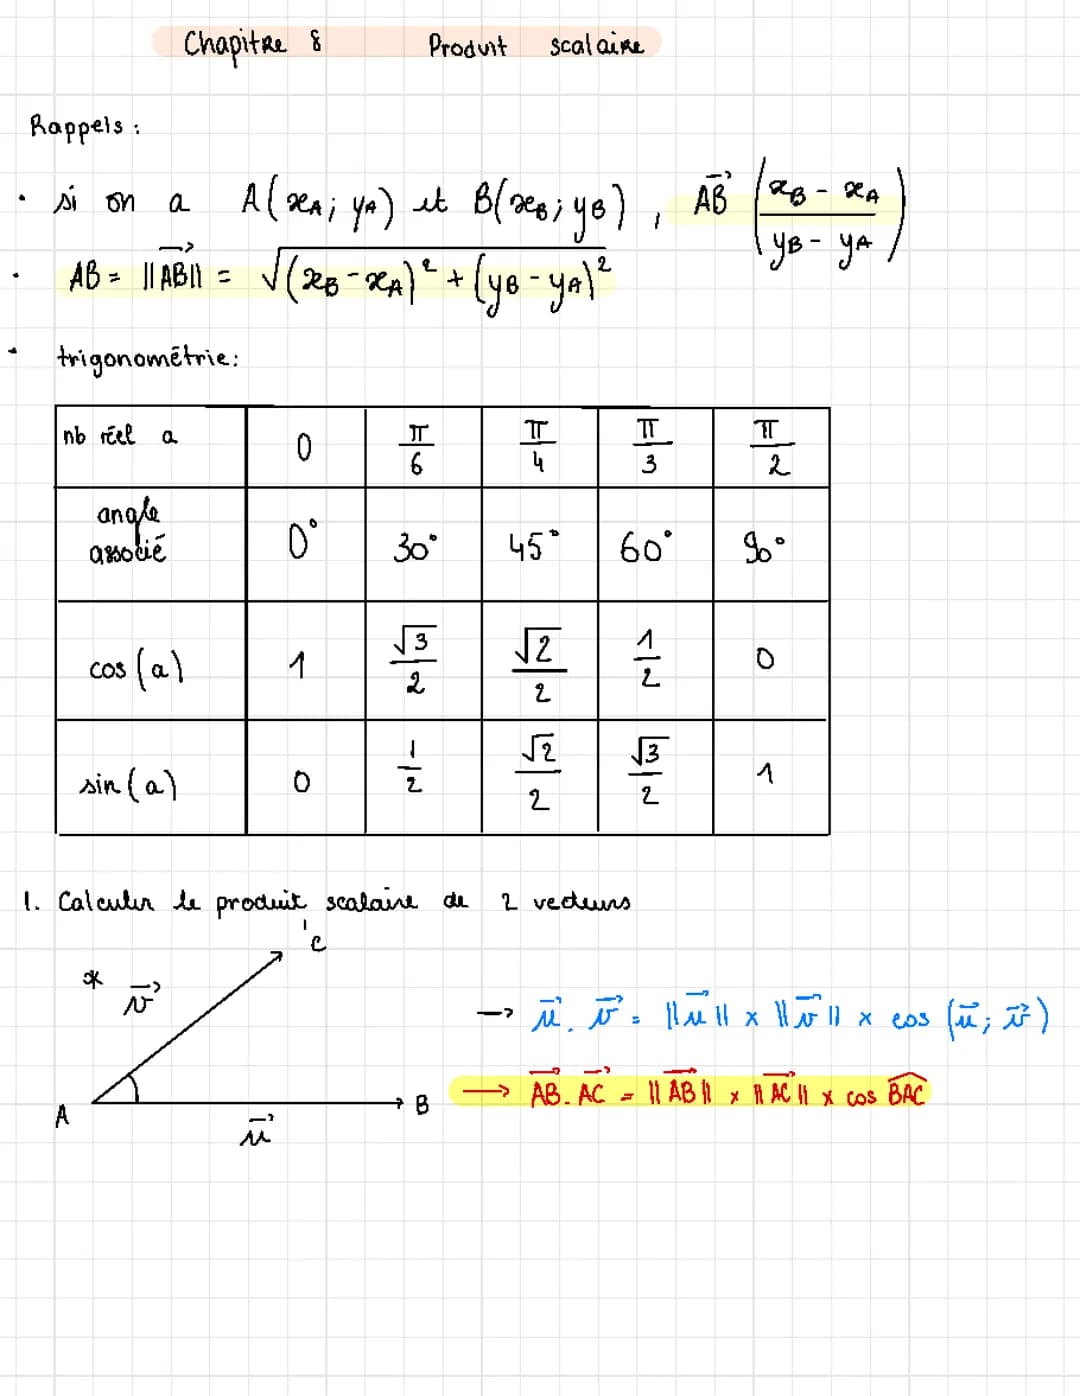 Chapitre 8 Produit scalaire
Rappels :
• si on a A(xA ; yA) et B(xB ; yB) , AB→ (xB - xA / yB - yA)
• AB = ||AB→|| = √(xB - xA)² + (yB - yA)²
• trigonométrie :
nb réel a 0 π/6 π/4 π/3 π/2
angle associé 0° 30° 45° 60° 90°
cos (a) 1 √3/2 √2/2 1/2 0
sin (a) 0 1/2 √2/2 √3/2 1
1. Calculer le produit scalaire de 2 vecteurs
C
* v→
→ u→ . v→ = ||u→|| x ||v→|| x cos (u→ ; v→)
→ AB→ . AC→ = ||AB→|| x ||AC→|| x cos BAC
A B
u→